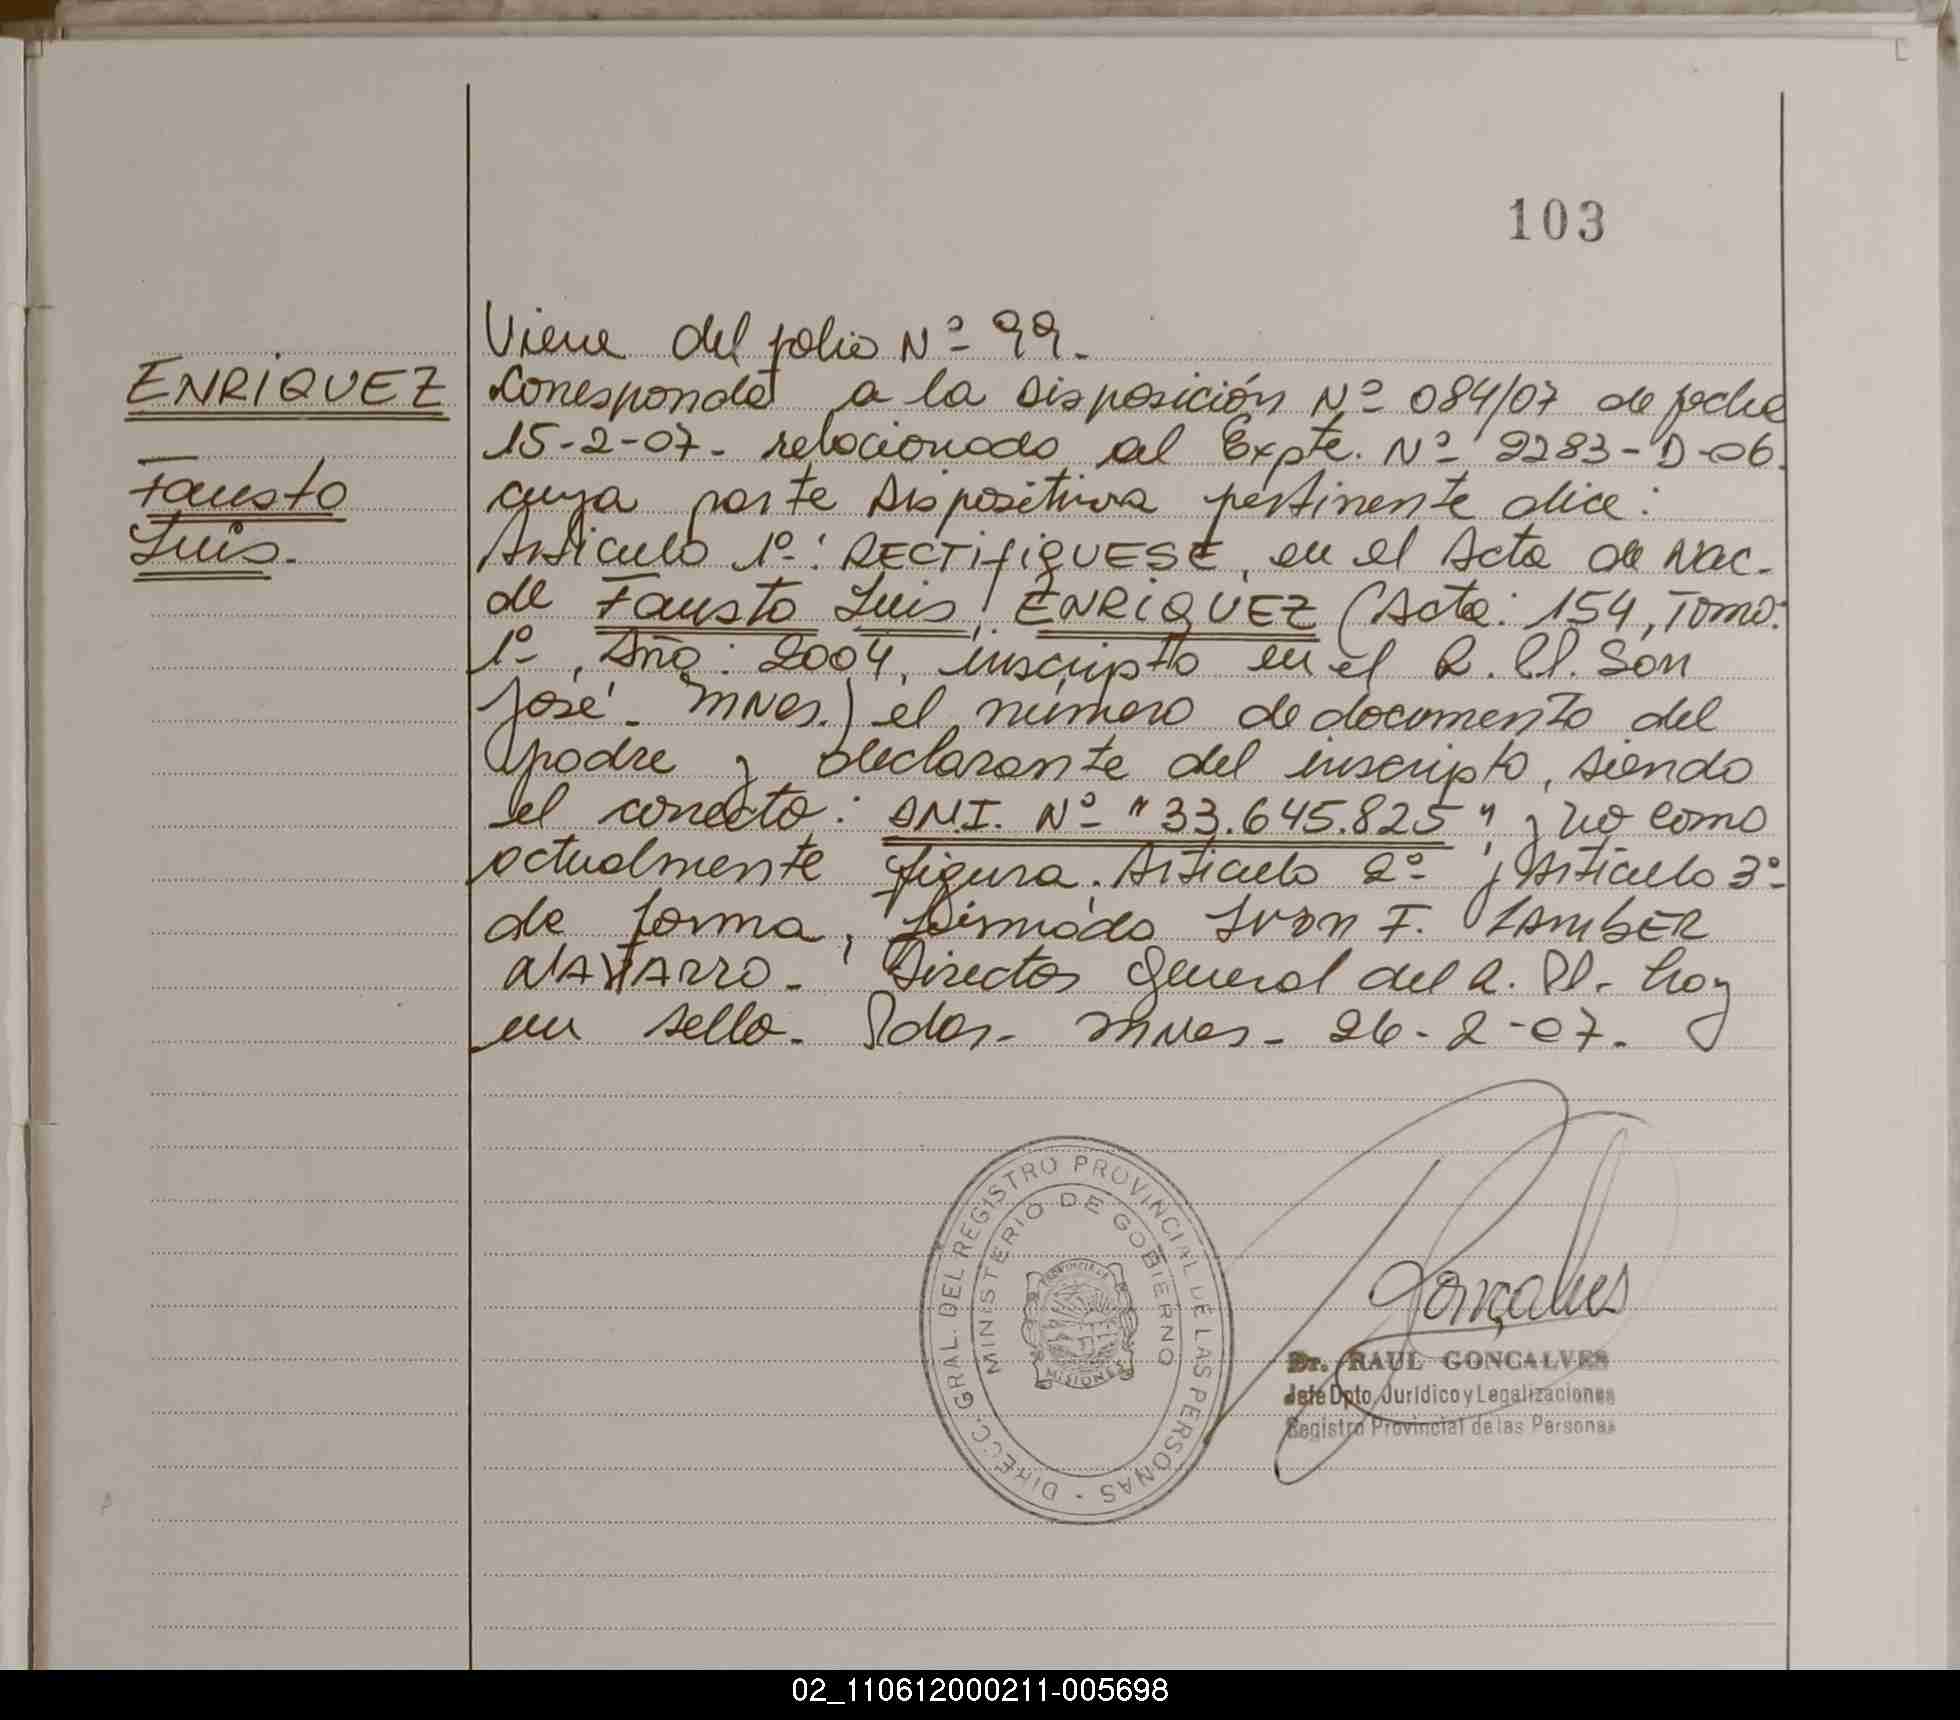 103
Viene del folio Nº 99.
ENRIQUEZ
Fausto
Luis.
Corresponde a la Disposición Nº 084/07 de fecha
15-2-07- relacionado al Expte. Nº 2283-D-06.
cuya parte Dispositiva pertinente dice:
Artículo 1º: RECTIFIQUESE, en el Acta de Nac-
de Fausto Luis ENRIQUEZ (Acta: 154, Tomo:
1º, Año: 2004, inscripto en el R.P.P. San
José- Mnes.) el número de documento del
padre y declarante del inscripto, siendo
el correcto: DNI. Nº "33.645.825", y no como
actualmente figura. Artículo 2º y Artículo 3º-
de forma, Firmado Ivan F. LAMBER
NAVARRO- Director General del R.P.P.- hay
un sello- Pdas- Mnes- 26-2-07.
DIRECC. GRAL. DEL REGISTRO PROVINCIAL DE LAS PERSONAS -
MINISTERIO DE GOBIERNO
PROVINCIA DE
MISIONES
Gonçalves
Dr. RAUL GONCALVES
Jefe Dpto. Jurídico y Legalizaciones
Registro Provincial de las Personas
02_110612000211-005698